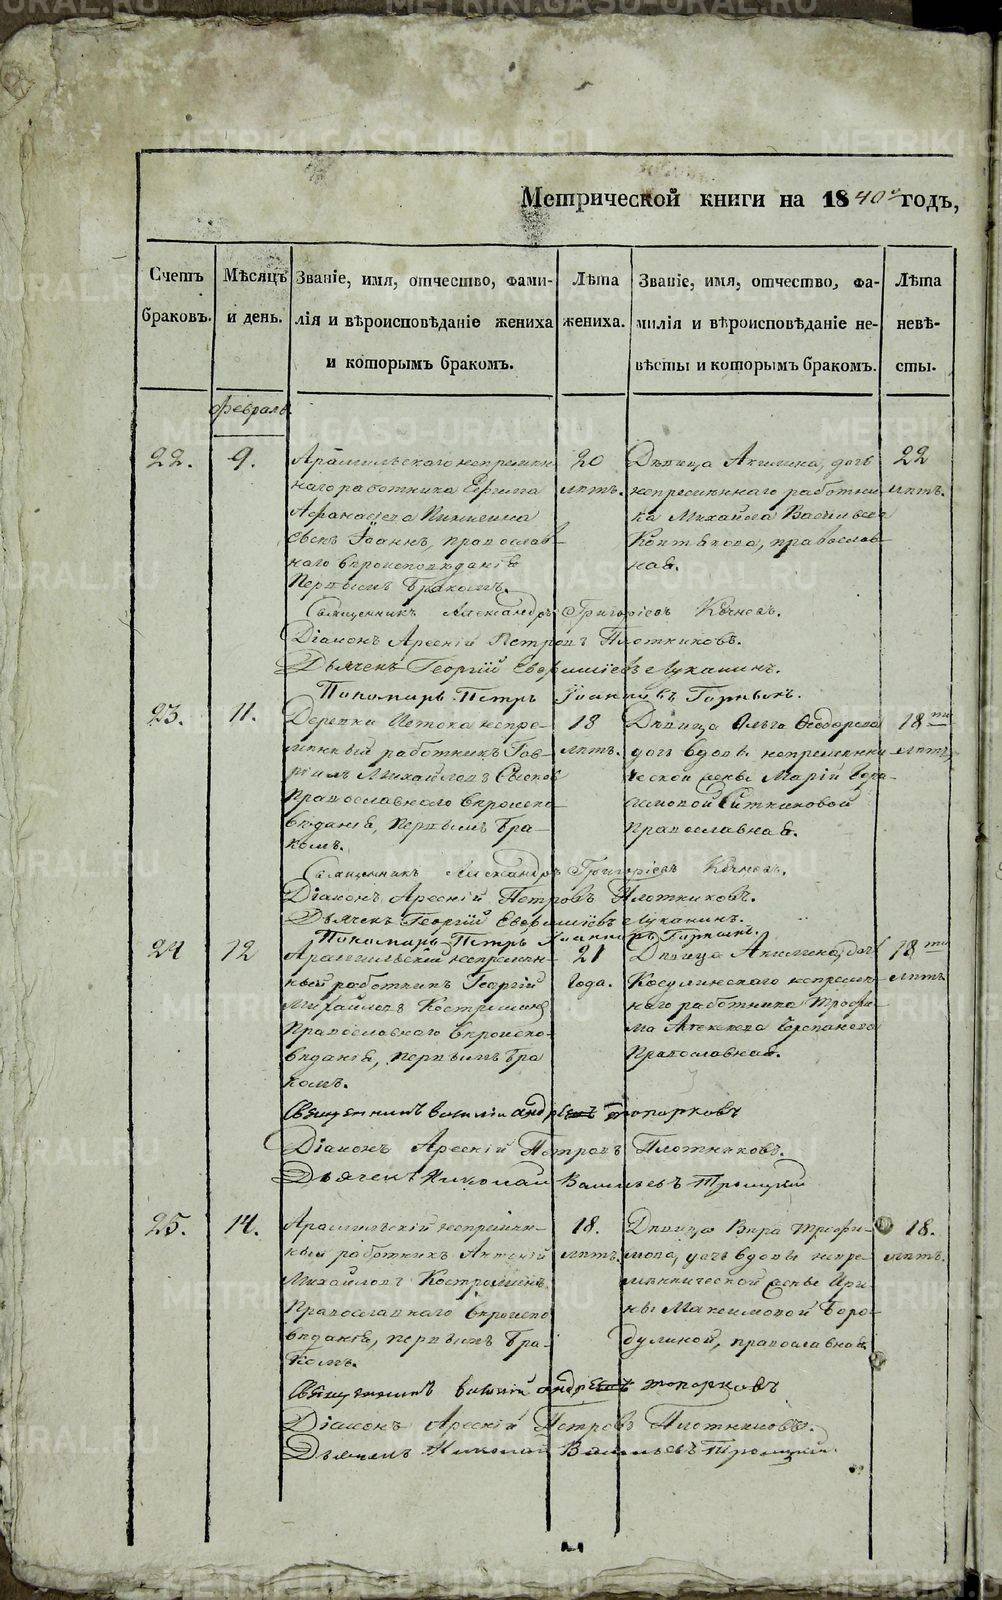 METRIKI.GASO-URAL.RU
Метрической книги на 1840й годъ,
Счетъ браковъ.
Мѣсяцъ и день.
Званіе, имя, отчество, фами-
лія и вѣроисповѣданіе жениха
и которымъ бракомъ.
Лѣта жениха.
Званіе, имя, отчество, фа-
милія и вѣроисповѣданіе не-
вѣсты и которымъ бракомъ.
Лѣта невѣ-
сты.
Февраль
22.
9.
Арамильскаго непремѣн-
наго работника Ефима
Афанасьева
сынъ Іоаннъ, православ-
наго вѣроисповѣданія
Первымъ бракомъ.
20
лѣтъ.
Дѣвица Акилина, дочь
непремѣннаго работни-
ка Михайла Васильева
православ-
ная.
22
лѣтъ.
Священникъ Александръ Григорьевъ
Діаконъ Арсеній Петровъ Плотниковъ.
Дьячекъ Георгій Луканинъ.
Пономарь Петръ Іоанновъ Горныхъ.
23.
11.
Деревни Истока непре-
мѣнный работникъ Гав-
ріилъ Михайловъ
Православнаго вѣроиспо-
вѣданія, первымъ бра-
комъ.
18
лѣтъ.
Дѣвица Ольга Феодорова
дочь вдовы непремѣнни-
ческой жены Маріи
Ситниковой
Православная.
18ти
лѣтъ
Священникъ Александръ Григорьевъ
Діаконъ Арсеній Петровъ Плотниковъ.
Дьячекъ Георгій Луканинъ.
Пономарь Петръ Іоанновъ Горныхъ.
24
12
Арамильскій непремѣн-
ный работникъ Георгій
Михайловъ Костроминъ
Православнаго вѣроиспо-
вѣданія, первымъ бра
комъ.
21
года.
Дѣвица Акилина, дочь
Косулинскаго непремѣн-
наго работника Трофи-
ма Черепанова
Православная.
18ти
лѣтъ
Священникъ Василій Андреевъ Топорковъ
Діаконъ Арсеній Петровъ Плотниковъ.
Дьячекъ Николай Васильевъ Троицкій
25.
14.
Арамильскій непремѣн-
ный работникъ Антоній
Михайловъ Костроминъ
Православнаго вѣроиспо
вѣданія, первымъ бра-
комъ.
18.
лѣтъ.
Дѣвица Вѣра Трофи-
мова, дочь вдовы непре-
мѣннической жены Ири-
ны Максимовой Боро-
дулиной, православная.
18.
лѣтъ.
Священникъ Василій Андреевъ Топорковъ
Діаконъ Арсеній Петровъ Плотниковъ.
Дьячекъ Николай Васильевъ Троицкій.